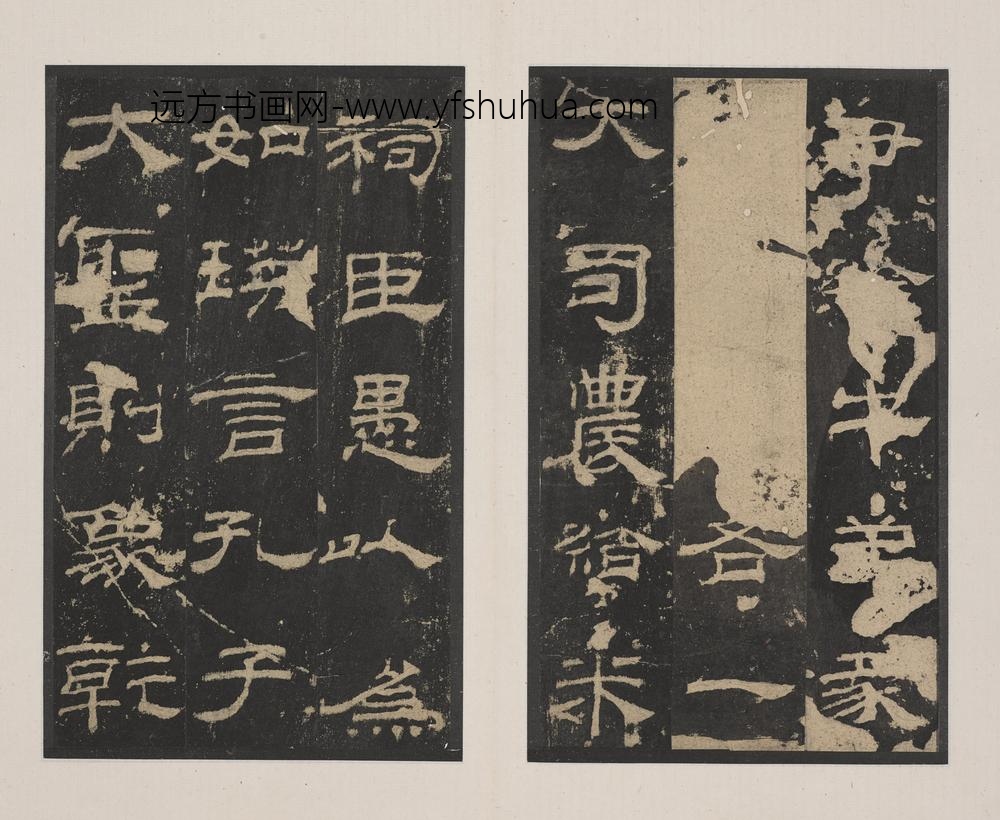 远方书画网-www.yfshuhua.com
牛豕
各一
大司農給米
祠臣愚以為
如瑛言孔子
大聖則象乾